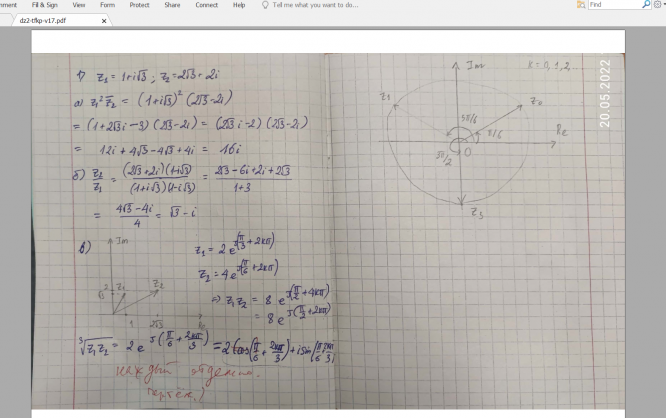 mment Fill & Sign View Form Protect Share Connect Help Tell me what you want to do... Find
dz2-tfkp-v17.pdf x
1) z₁ = 1+i√3 ; z₂ = 2√3 + 2i
а) z₁² z̅₂ = (1+i√3)² (2√3-2i)
= (1+2√3i-3)(2√3-2i) = (2√3i-2)(2√3-2i)
= 12i + 4√3 - 4√3 + 4i = 16i
б) z₂/z₁ = (2√3+2i)(1-i√3)/(1+i√3)(1-i√3) = 2√3-6i+2i+2√3/1+3
= 4√3-4i/4 = √3 - i
в)
Im
z₁ z₂
1 2√3
z₁ = 2 e^(π/3 + 2kπ)
z₂ = 4 e^(π/6 + 2kπ)
⇒ z₁z₂ = 8 e^(π/2 + 4kπ)
= 8 e^(π/2 + 2kπ)
³√z₁z₂ = 2 e^(π/6 + 2kπ/3) = 2(cos(π/6 + 2kπ/3) + i sin(π/6
каждый
чертёж)
Im k = 0, 1, 2...
z₀
5π/6
π/6 Re
3π/2 0
z₃
20.05.2022